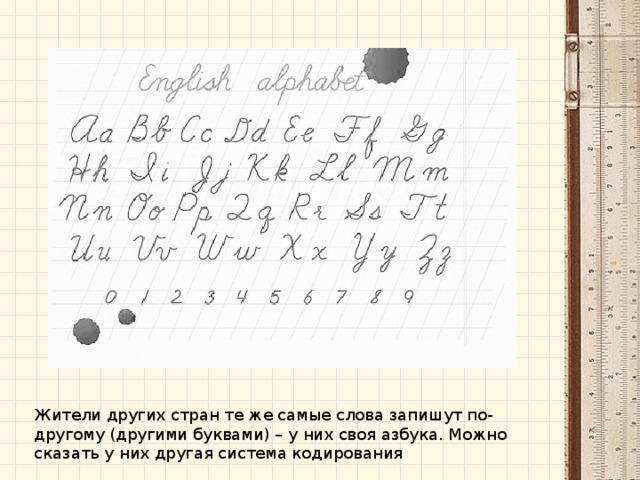 English alphabet
Aa Bb Cc Dd Ee Ff Gg
Hh Ii Jj Kk Ll Mm
Nn Oo Pp Qq Rr Ss Tt
Uu Vv Ww Xx Yy Zz
0 1 2 3 4 5 6 7 8 9
Жители других стран те же самые слова запишут по-
другому (другими буквами) – у них своя азбука. Можно
сказать у них другая система кодирования